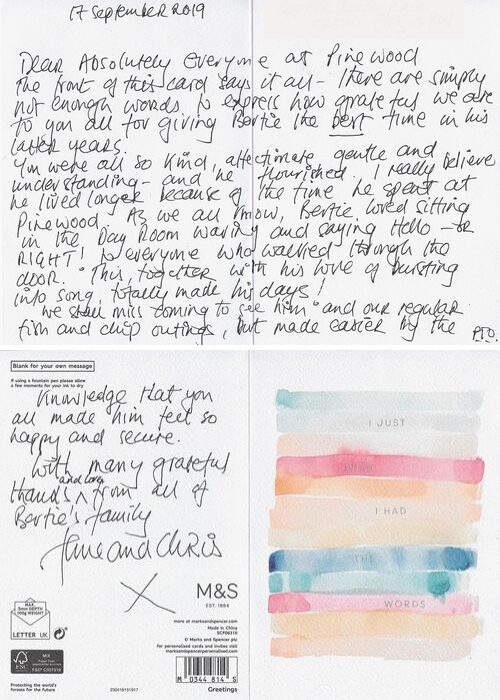 17 September 2019
Dear Absolutely everyone at Pinewood
The front of this card says it all - there are simply
not enough words to express how grateful we are
to you all for giving Bertie the best time in his
latter years.
You were all so kind, affectionate, gentle and
understanding - and he flourished. I really believe
he lived longer because of the time he spent at
Pinewood. As we all know, Bertie loved sitting
in the Day Room waving and saying Hello - or
RIGHT! to everyone who walked through the
door. This, together with his love of bursting
into song, totally made his days!
We shall miss coming to see him and our regular
fish and chip outings, but made easier by the
P.T.O.
Blank for your own message
If using a fountain pen please allow
a few moments for your ink to dry
knowledge that you
all made him feel so
happy and secure.
With many grateful
thanks and love from all of
Bertie's family
and Chris
X
M&S
EST. 1884
more at marksandspencer.com
Made in China
© Marks and Spencer plc
for personalised cards and invites visit
marksandspencerpersonalised.com
MAX.
5mm DEPTH
100g WEIGHT
LETTER UK
FSC
MIX
Protecting the world's
forests for future generations
M 0344 814 S
Greetings
I JUST
WISH
I HAD
THE
WORDS